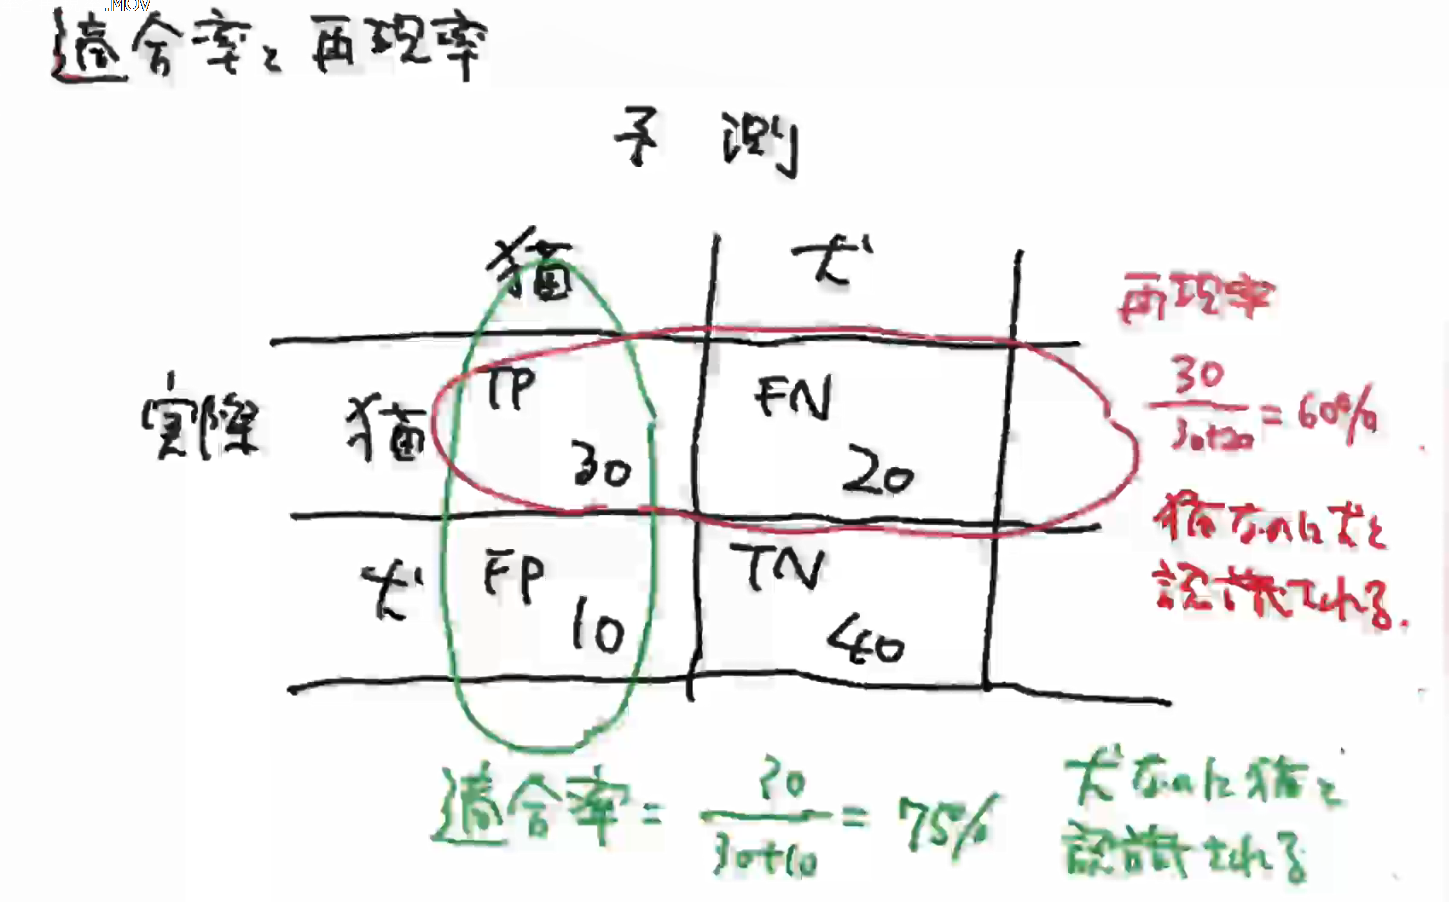 .MOV
適合率と再現率
予測
猫 犬
実際 猫 TP 30 FN 20
犬 FP 10 TN 40
再現率
30
30+20
= 60%
猫なのに犬と
認識される.
適合率 = 30
30+10
= 75%
犬なのに猫と
認識される